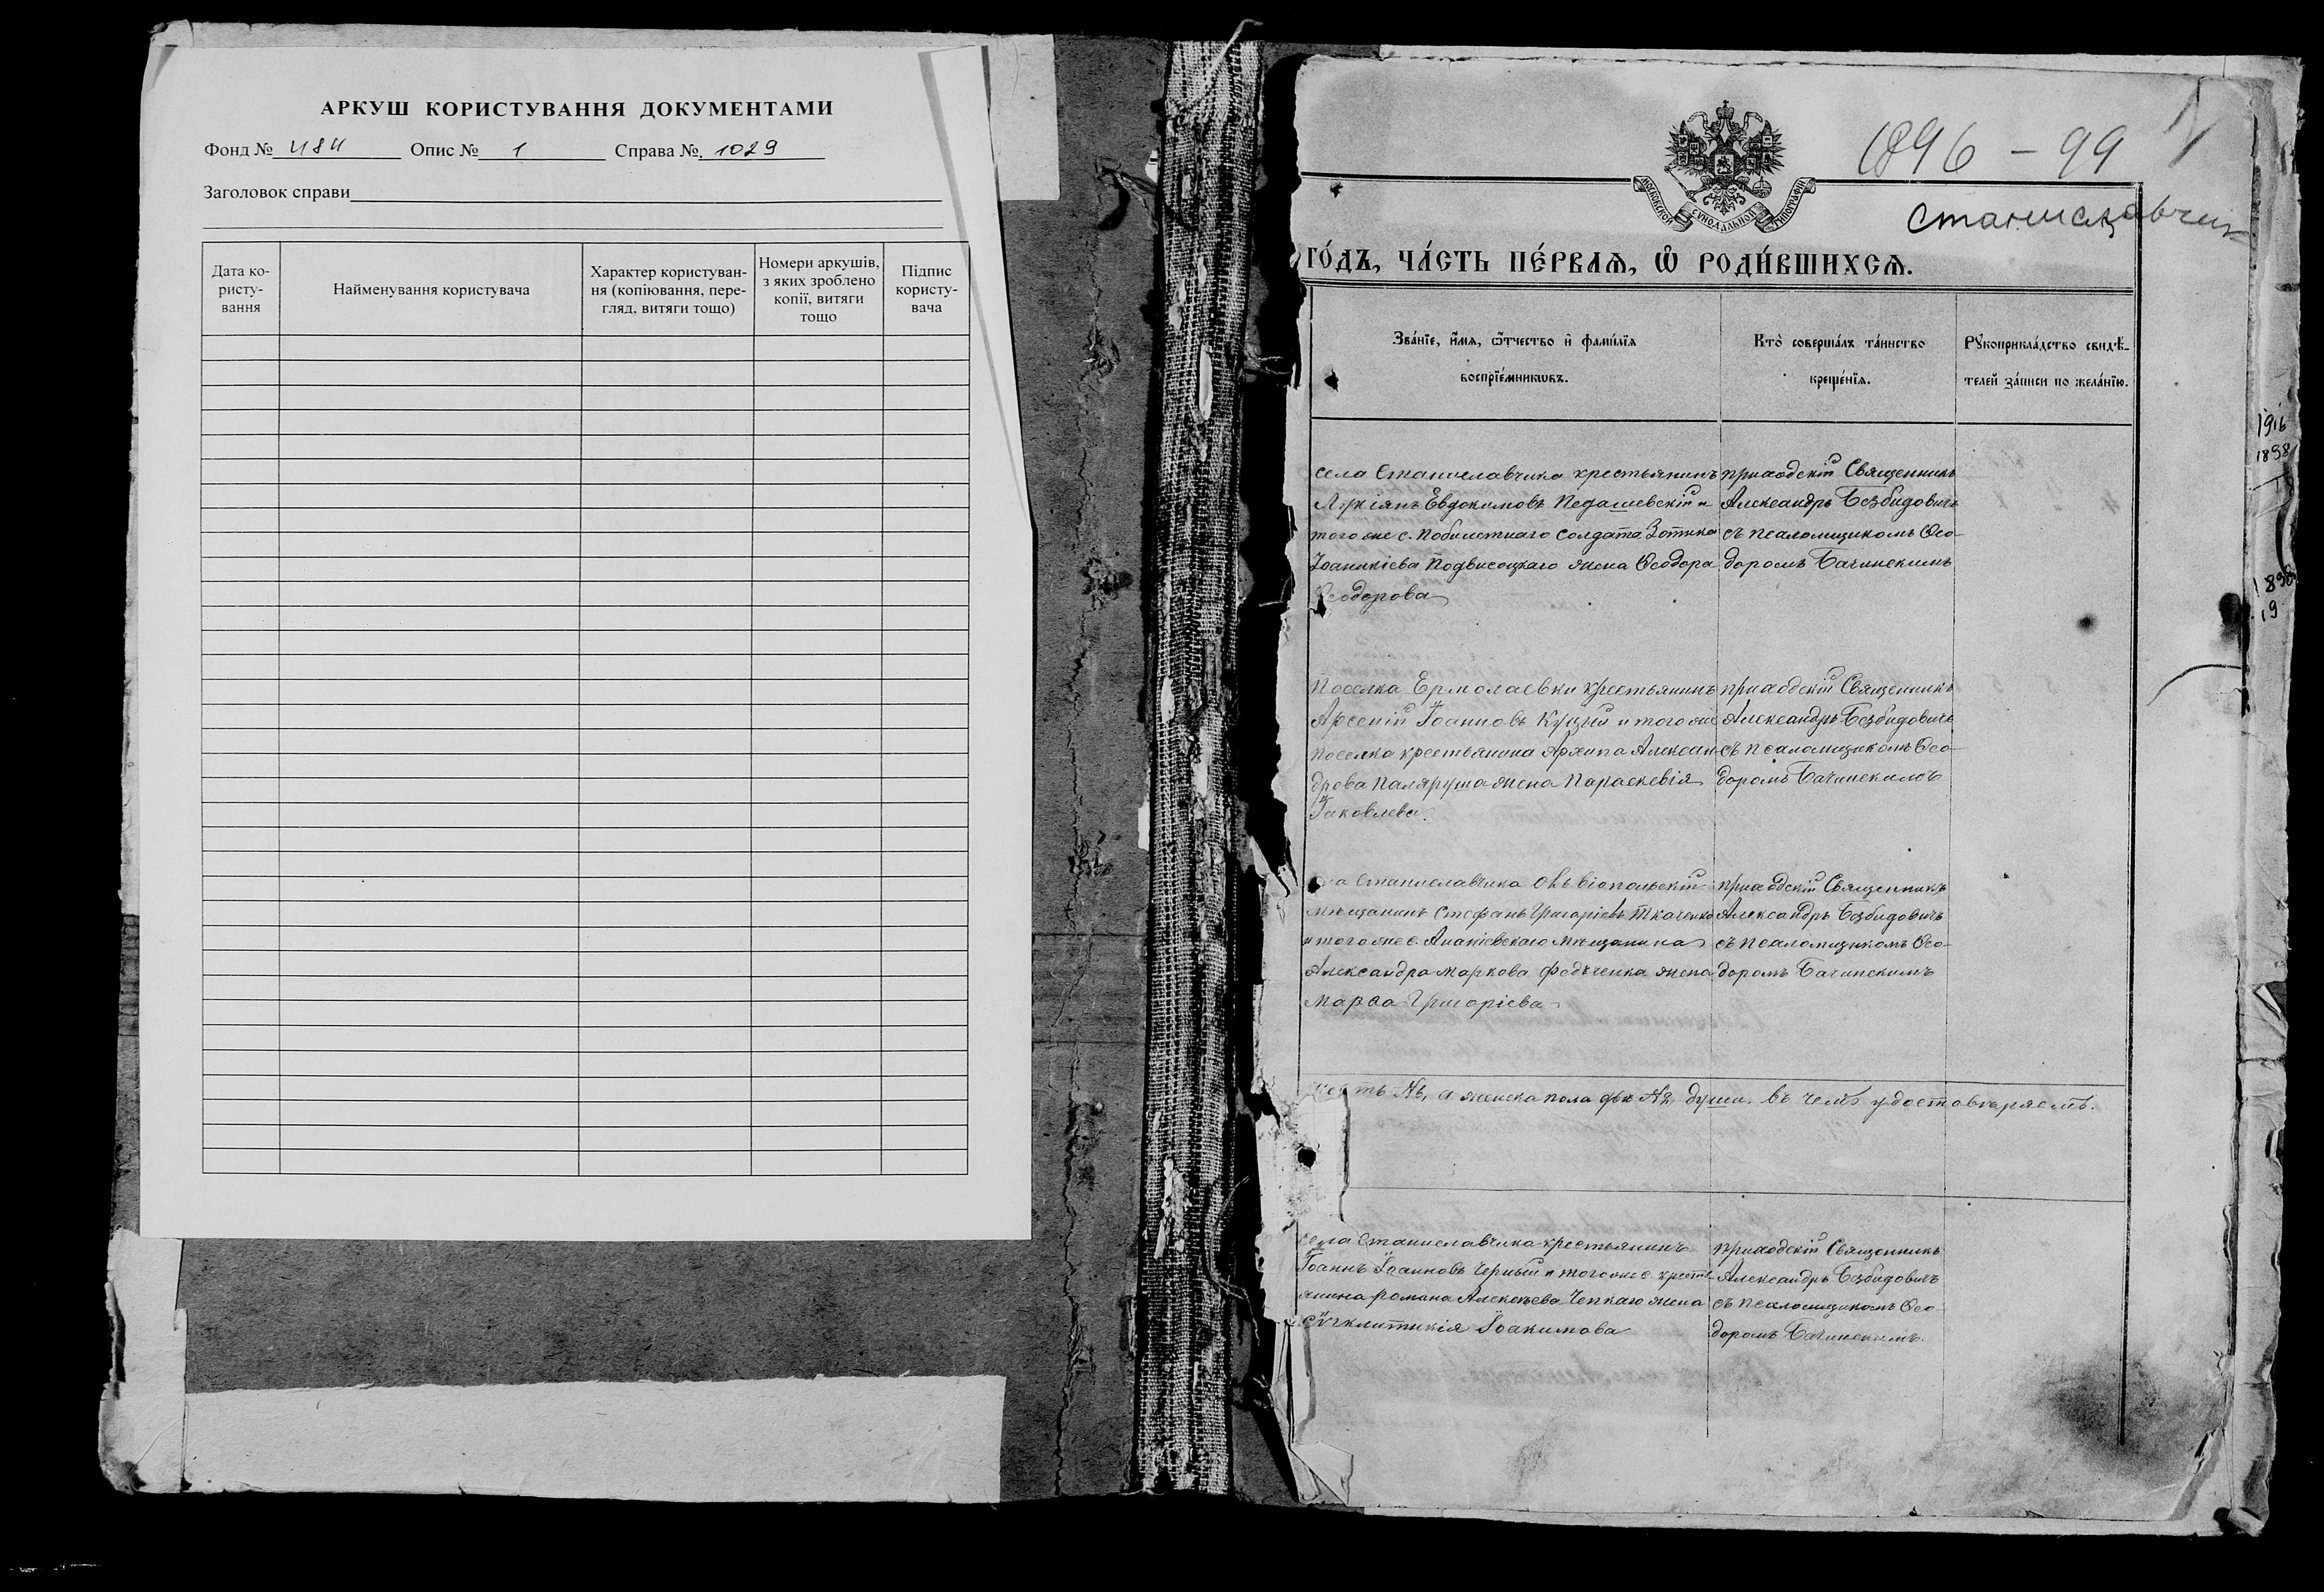 АРКУШ КОРИСТУВАННЯ ДОКУМЕНТАМИ
Фонд № 484 Опис № 1 Справа № 1029
Заголовок справи
Дата ко-
ристу-
вання
Найменування користувача
Характер користуван-
ня (копіювання, пере-
гляд, витяги тощо)
Номери аркушів,
з яких зроблено
копії, витяги
тощо
Підпис
користу-
вача
1896 - 99
Станиславчик
МОСКОВСКОЙ СУНОДАЛЬНОЙ ТИПОГРАФІИ
ГО́ДЪ, ЧА́СТЬ ПЕ́РВАЯ, Ѡ҆ РОДИ́ВШИХСЯ.
Зва́нїе, и҆́мѧ, ѻ҆́тчество и҆ фами́лїѧ
воспрїе́мникѡвъ.
Кто̀ соверша́лъ та́инство
креще́нїѧ.
Рꙋкоприкла́дство свидѣ́-
телей за́писи по жела́нїю.
села Станиславчика крестьянинъ
Лукіянъ Евдокимовъ Недашевскій и
того же с. побилетнаго солдата Зотика
Іоаникіева Подвисоцкаго жена Ѳеодора
Ѳеодорова
приходскій Священникъ
Александръ Безбидовичъ
съ псаломщикомъ Ѳео-
доромъ Бачинскимъ
Поселка Ермолаевки крестьянинъ
Арсеній Іоанновъ Куцый и того же
поселка крестьянина Архипа Алексан-
дрова Паляруша жена Параскевія
Іаковлева.
приходскій Священникъ
Александръ Безбидовичъ
съ псаломщикомъ Ѳео-
доромъ Бачинскимъ
Станиславчика Ольвіопольскій
мѣщанинъ Стефанъ Григоріевъ Ткаченко
и того же с. Ананіевскаго мѣщанина
Александра Маркова Федченка жена
Марѳа Григоріева
приходскій Священникъ
Александръ Безбидовичъ
съ псаломщикомъ Ѳео-
доромъ Бачинскимъ
а женска пола душа. въ чемъ удостовѣряемъ.
села Станиславчика крестьянинъ
Іоаннъ Іоанновъ Черный и того же с. кресть-
янина Романа Алексѣева Чепкаго жена
Сѵнклитикія Іоакимова
приходскій Священникъ
Александръ Безбидовичъ
съ псаломщикомъ Ѳео-
доромъ Бачинскимъ.
1916
1898
1898
19